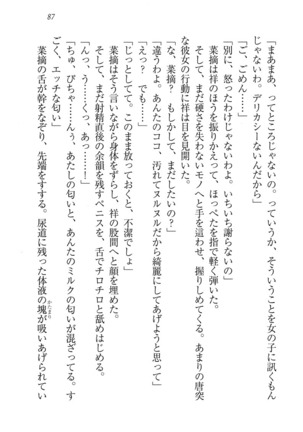 87
「まあまあ、ってところじゃないの。っていうか、そういうことを女の子に訊くもん
じゃないわ。デリカシーないんだから」
「ご、ごめん……」
「別に、怒ったわけじゃないわよ。いちいち謝らないの」
菜摘は祥のほうを振りかえって、ほっぺたを指で軽く弾いた。
そして、まだ硬さを失わないモノへと手を這わせ、握りしめてくる。あまりの唐突
な彼女の行動に祥は目を見開いた。
「な、菜摘？　もしかして、まだしたいの？」
「違うわよ。あんたのココ、汚れてヌルヌルだから綺麗にしてあげようと思って」
「えっ？　でも……」
「じっとしてて。このまま放っておくと、不潔でしょ」
菜摘はそう言いながら身体をずらし、祥の股間へと顔を埋めた。
そして、まだ射精直後の余韻を残すペニスを、舌でチロチロと舐めはじめる。
「んっ、う……くっ、あっ……！」
「ちゅ、ぴちゃ……んっ、あたしの匂いと、あんたのミルクの匂いが混ざってる。す
ごく、エッチな匂い」
菜摘の舌が幹をなぞり、先端をすする。尿道に残った体液の塊が吸いあげられてい
かたまり